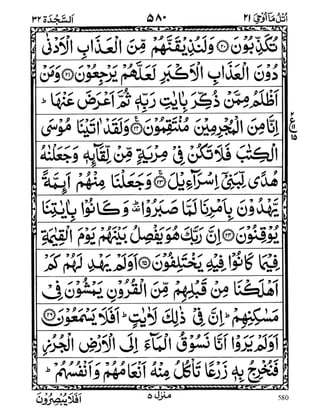 اَلسَّجْدَة ٣٢ ٥٨٠ اُتْلُ مَآ اُوْحِيَ ٢١
تُكَذِّبُوْنَ ﴿٢٠﴾ وَلَنُذِيْقَنَّهُمْ مِّنَ الْعَذَابِ الْاَدْنٰى
دُوْنَ الْعَذَابِ الْاَكْبَرِ لَعَلَّهُمْ يَرْجِعُوْنَ ﴿٢١﴾ وَمَنْ
اَظْلَمُ مِمَّنْ ذُكِّرَ بِاٰيٰتِ رَبِّهٖ ثُمَّ اَعْرَضَ عَنْهَا ؕ
اِنَّا مِنَ الْمُجْرِمِيْنَ مُنْتَقِمُوْنَ ﴿٢٢﴾ وَلَقَدْ اٰتَيْنَا مُوْسَى
الْكِتٰبَ فَلَا تَكُنْ فِيْ مِرْيَةٍ مِّنْ لِّقَآئِهٖ وَجَعَلْنٰهُ
هُدًى لِّبَنِيْٓ اِسْرَآءِيْلَ ﴿٢٣﴾ وَجَعَلْنَا مِنْهُمْ اَئِمَّةً
يَّهْدُوْنَ بِاَمْرِنَا لَمَّا صَبَرُوْا ؕ وَكَانُوْا بِاٰيٰتِنَا
يُوْقِنُوْنَ ﴿٢٤﴾ اِنَّ رَبَّكَ هُوَ يَفْصِلُ بَيْنَهُمْ يَوْمَ الْقِيٰمَةِ
فِيْمَا كَانُوْا فِيْهِ يَخْتَلِفُوْنَ ﴿٢٥﴾ اَوَلَمْ يَهْدِ لَهُمْ كَمْ
اَهْلَكْنَا مِنْ قَبْلِهِمْ مِّنَ الْقُرُوْنِ يَمْشُوْنَ فِيْ
مَسٰكِنِهِمْ ؕ اِنَّ فِيْ ذٰلِكَ لَاٰيٰتٍ ؕ اَفَلَا يَسْمَعُوْنَ ﴿٢٦﴾
اَوَلَمْ يَرَوْا اَنَّا نَسُوْقُ الْمَآءَ اِلَى الْاَرْضِ الْجُرُزِ
فَنُخْرِجُ بِهٖ زَرْعًا تَاْكُلُ مِنْهُ اَنْعَامُهُمْ وَاَنْفُسُهُمْ ؕ
اَفَلَا يُبْصِرُوْنَ
منزل ٥
580